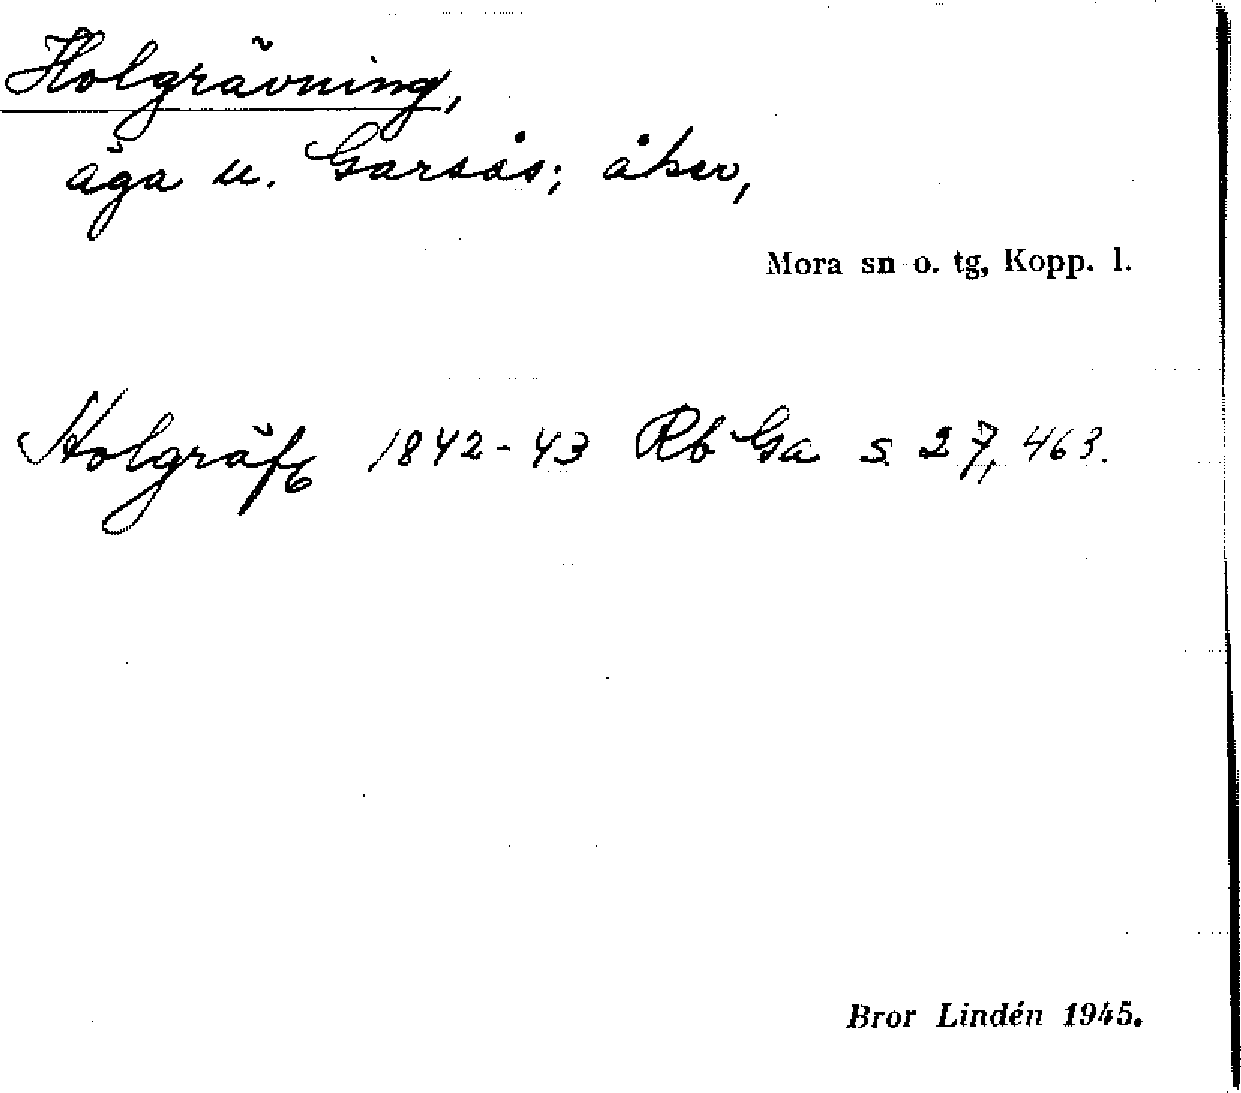 Holgrävning,
äga u. Garsås; åker,
Mora sn o. tg, Kopp. l.
Holgräf 1842-43 Rb Ga s 27, 463.
Bror Lindén 1945.